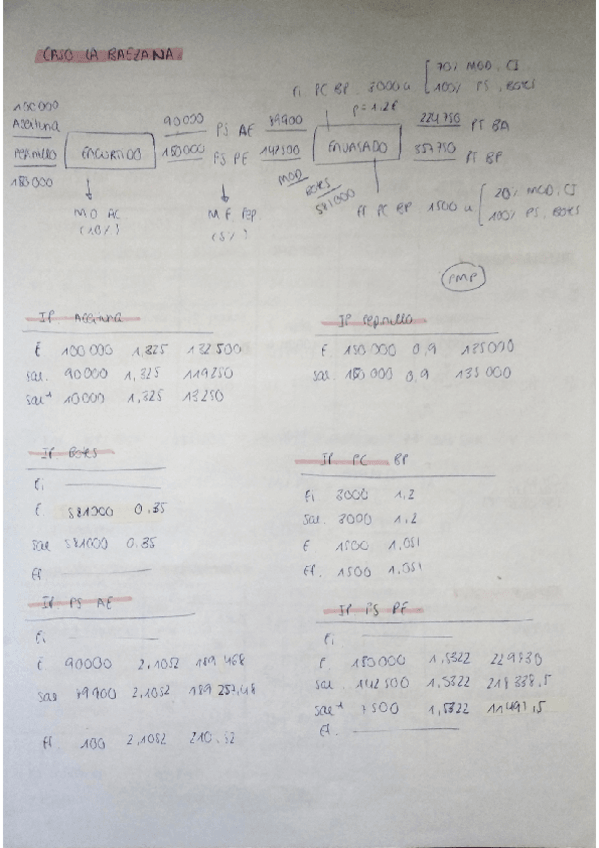 CASO LA BAEZANA
Fi PC BP 3000 u [ 70% MOD. CI
100% PS, BOTES
p = 1.2€
100000
Aceituna
90000 PS AE 89900
224750 PT BA
Pepinillo
ENCURTIDO
150000 PS PE 142500
ENVASADO
357750 PT BP
150000
MOD
BOTES
581000
M.O AC
(10%)
M.E PEP.
(5%)
PC BP 1500 u [ 20% MOD, CI
100% PS, BOTES
PMP
IP Aceituna
E 100000 1,325 132.500
Sal. 90000 1,325 119250
Sal* 10000 1,325 13250
IP Pepinillo
E 150000 0,9 135000
Sal. 150000 0,9 135000
IP BOTES
Ei
E 581000 0.35
Sal 581000 0.35
Ef
IP PC BP
Ei 3000 1,2
Sal 3000 1,2
E 1500 1.051
Ef. 1500 1.051
IP PS AE
Ei
E 90000 2,1052 189468
Sal 89900 2,1052 189257,48
Ef 100 2,1052 210.52
IP PS PE
Ei
E 150000 1,5322 229830
Sal 142500 1,5322 218338,5
Sal* 7500 1,5322 11491,5
Ef.